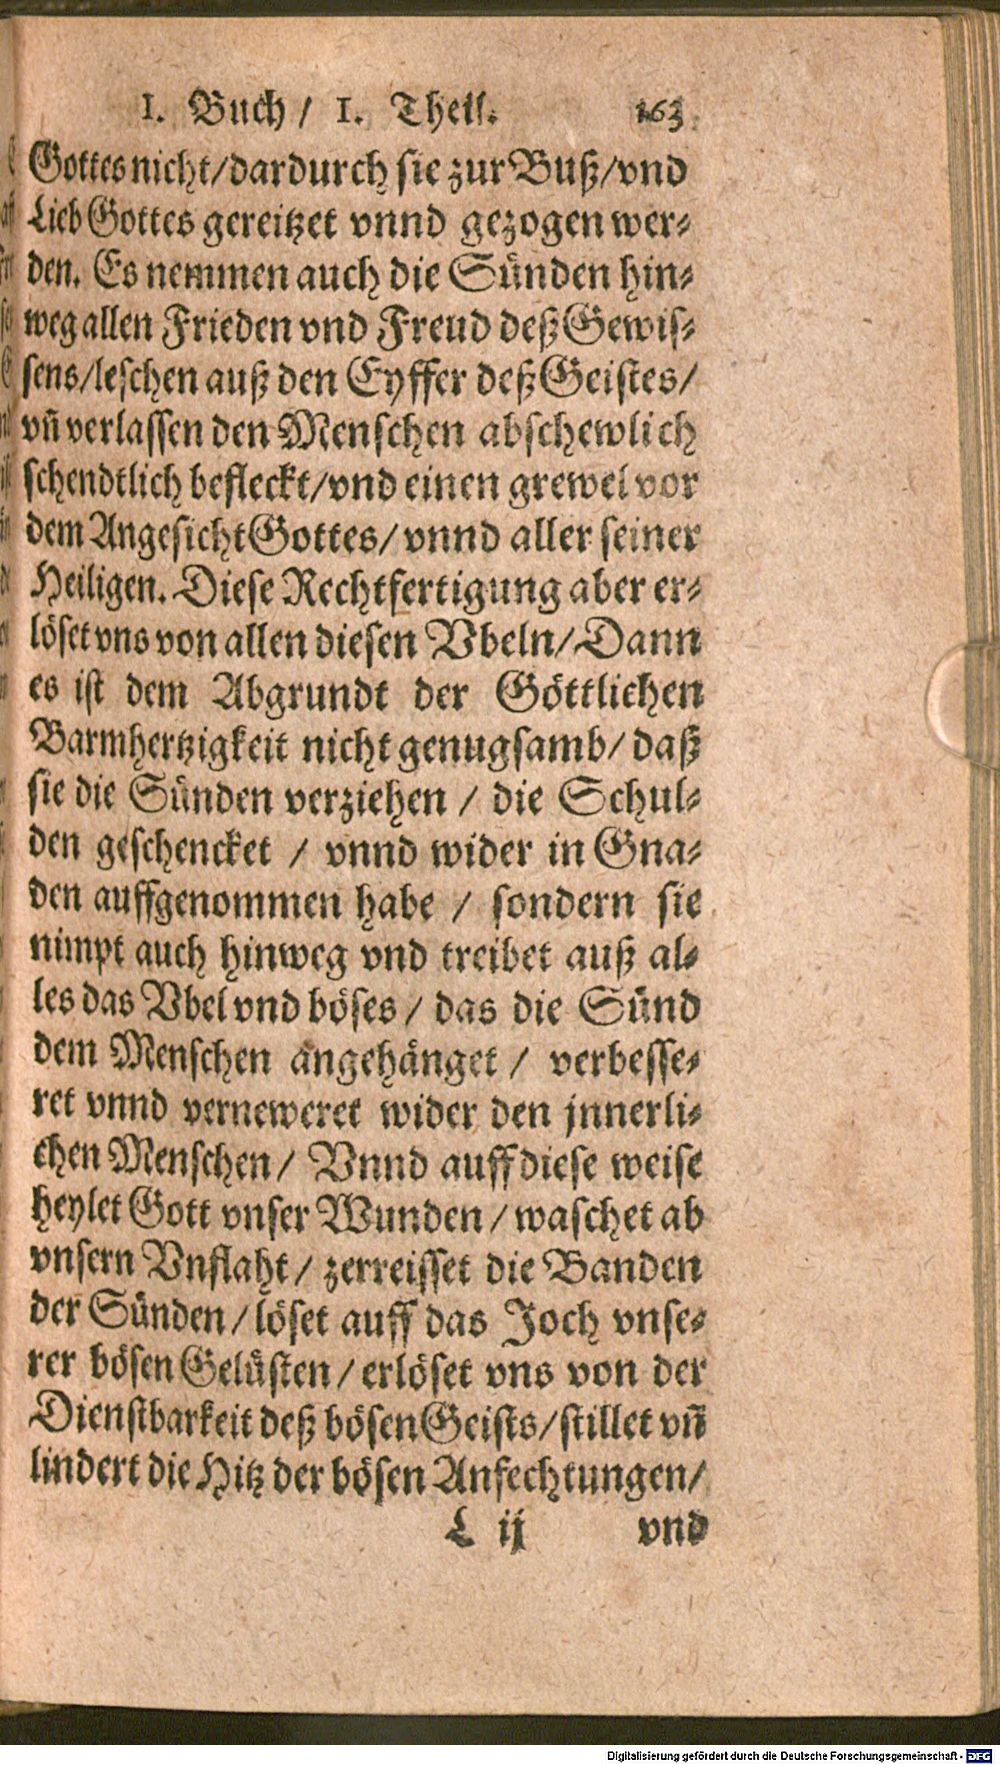 1. Buch / 1. Theil. 163
Gottes nicht/dardurch sie zur Buß/vnd
Lieb Gottes gereitzet vnnd gezogen wer-
den. Es nemmen auch die Sünden hin-
weg allen Frieden vnd Freud deß Gewis-
sens/leschen auß den Eyffer deß Geistes/
vñ verlassen den Menschen abschewlich
schendtlich befleckt/vnd einen grewel vor
dem Angesicht Gottes/ vnnd aller seiner
Heiligen. Diese Rechtfertigung aber er-
löset vns von allen diesen Vbeln/ Dann
es ist dem Abgrundt der Göttlichen
Barmhertzigkeit nicht genugsamb/ daß
sie die Sünden verziehen / die Schul-
den geschencket / vnnd wider in Gna-
den auffgenommen habe / sondern sie
nimpt auch hinweg vnd treibet auß al-
les das Vbel vnd böses / das die Sünd
dem Menschen angehänget / verbesse-
ret vnnd verneweret wider den jnnerli-
chen Menschen/ Vnnd auff diese weise
heylet Gott vnser Wunden / waschet ab
vnsern Vnflaht / zerreisset die Banden
der Sünden / löset auff das Joch vnse-
rer bösen Gelüsten / erlöset vns von der
Dienstbarkeit deß bösen Geists/stillet vñ
lindert die Hitz der bösen Anfechtungen/
L ij vnd
Digitalisierung gefördert durch die Deutsche Forschungsgemeinschaft - DFG